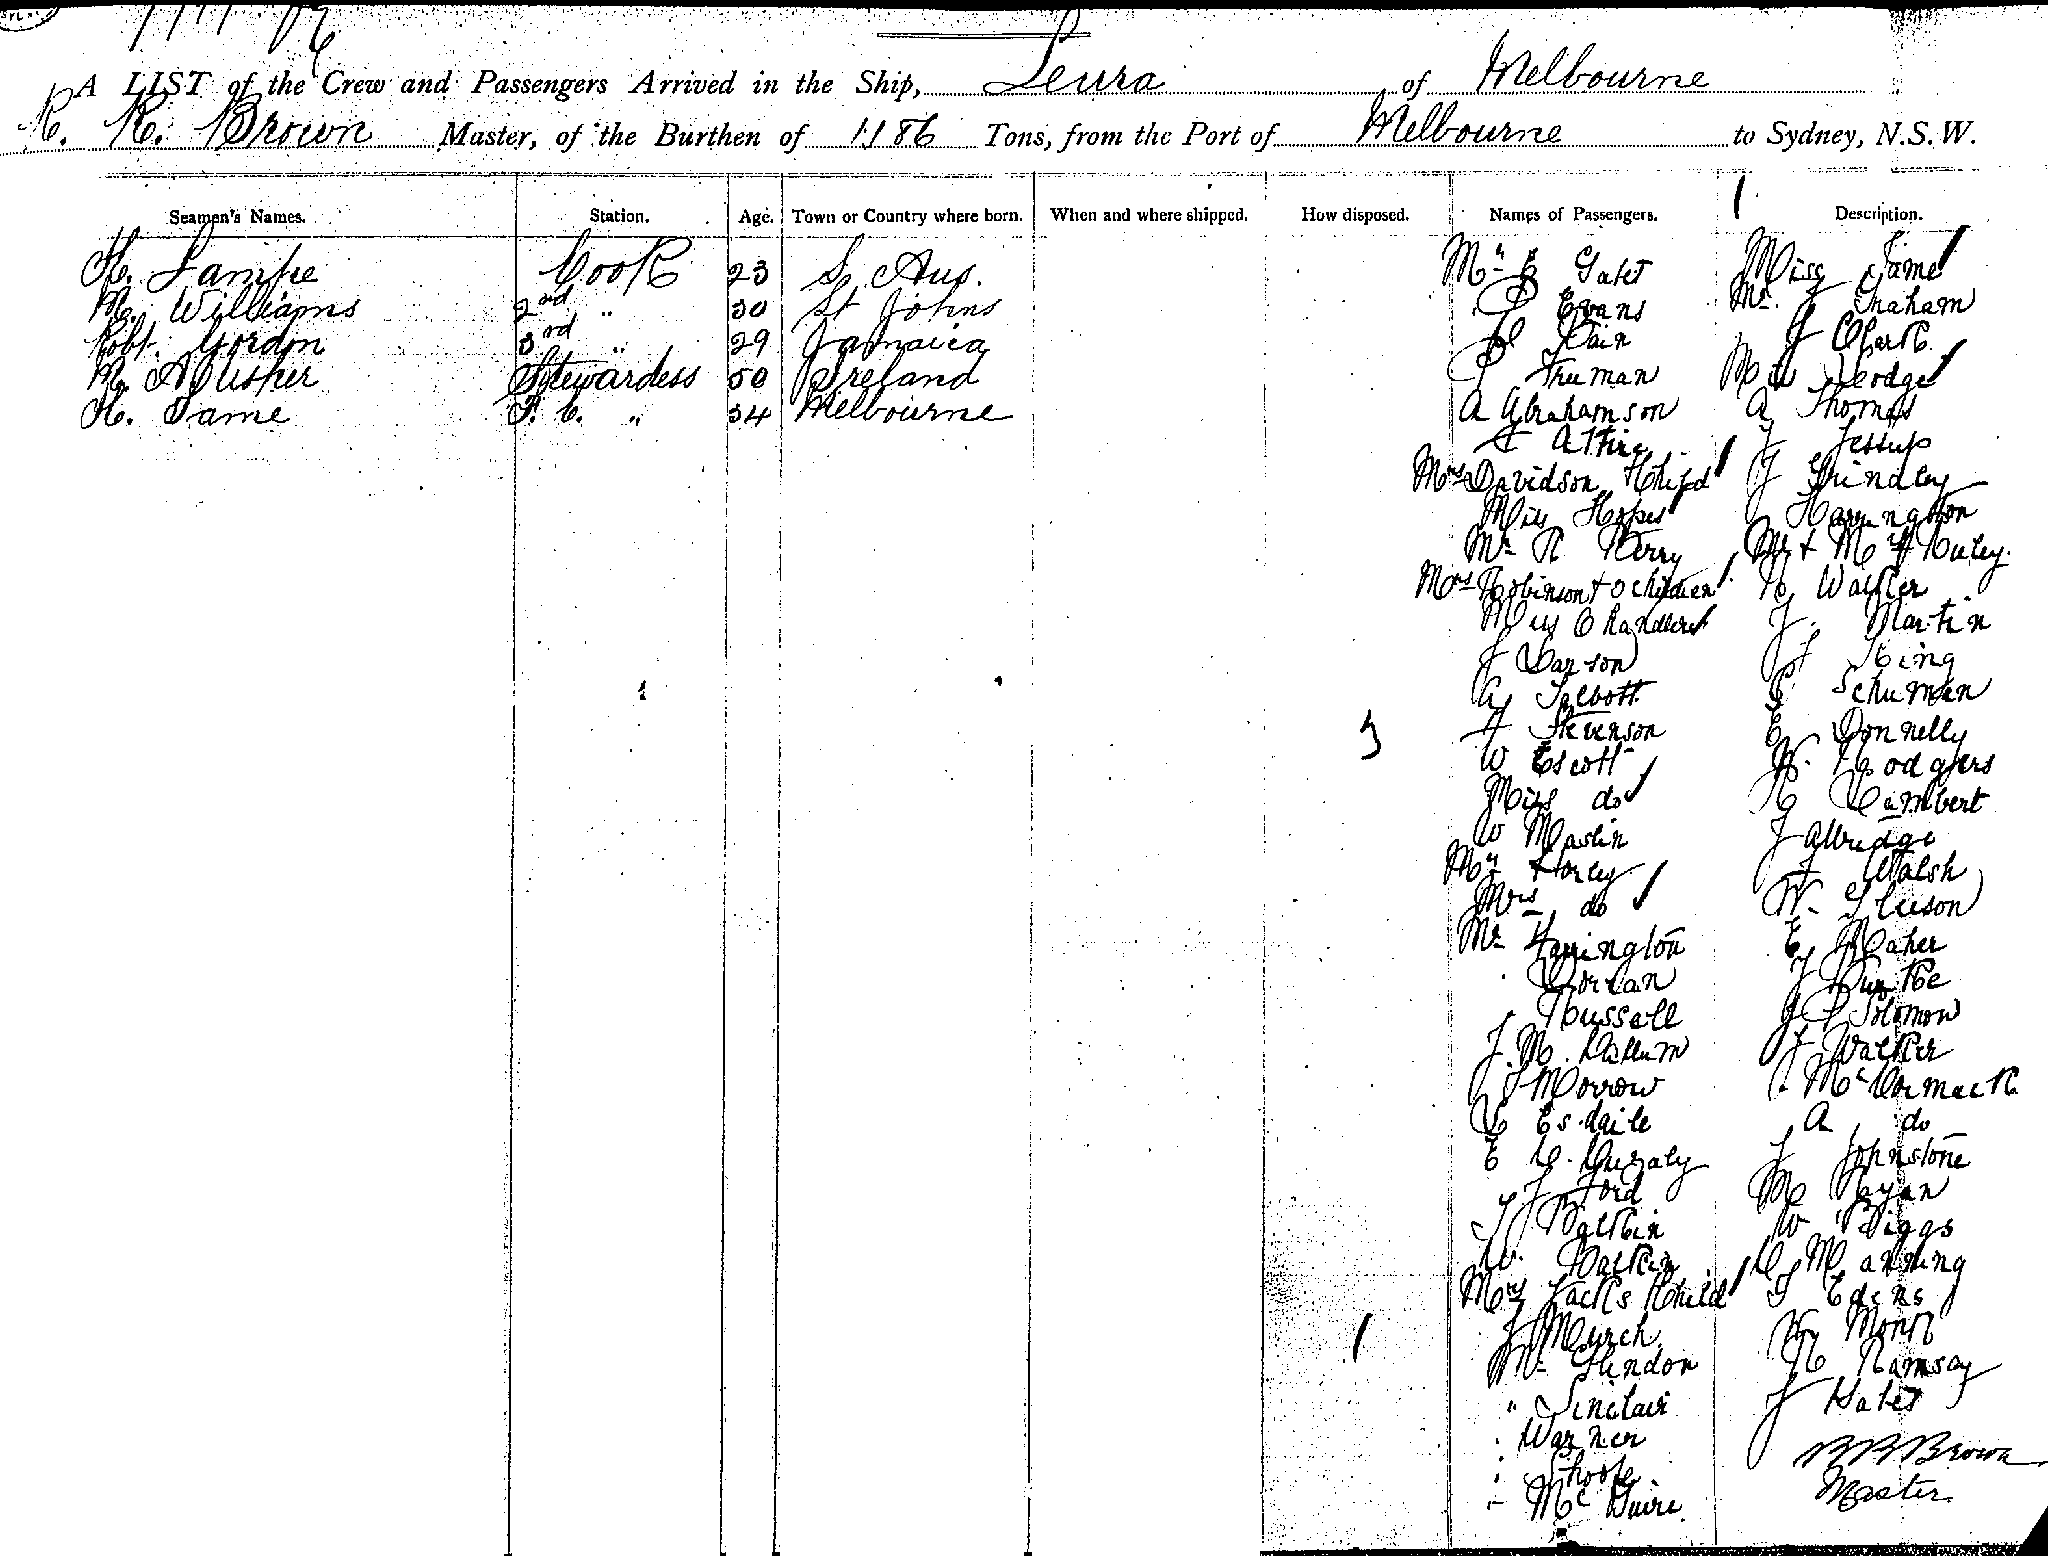 A LIST of the Crew and Passengers Arrived in the Ship, Leura of Melbourne
R. R. Brown Master, of the Burthen of 1186 Tons, from the Port of Melbourne to Sydney, N.S.W.
Seamen's Names. Station. Age. Town or Country where born. When and where shipped. How disposed. Names of Passengers. Description.
H. Lampe Cook 23 S. Aus.
M. Williams 2nd " 30 St Johns
Robt. Gordon 3rd " 29 Jamaica
M. Stewardess 50 Ireland
H. Fame F. C. " 34 Melbourne
Mr E
Evans
Pain
Truman
A Abrahamson
Mrs Davidson & Child
Miss
Mr R Kerry
Mrs Robinson + children
Miss Chandler
J
A Talbott
Stevenson
W Escott
Miss do
W Maslin
Mr Horley
Mrs do
Mr Harrington
Dorian
Russell
J. M.
J Morrow
C Esdaile
E
J Ford
J Balkin
W. Balkin
Mrs Jacks & Child
J Murch
Mr Glindon
" Sinclair
" Warner
"
" McGuire
Miss Fame
Mr. J Graham
J Clark
Miss Hodge
A Thomas
J Jessup
J Grindley
J Harrington
Mr + Mrs
R Walker
J. Martin
J King
Schuman
E Donnelly
W. Rodgers
R Lambert
J Allridge
J Walsh
W. Gleeson
E Maher
J Burke
J Solomon
J Walker
" McCormack
A do
J Johnstone
M Ryan
W Biggs
C Manning
J Edens
Monk
R Ramsay
J Bates
R R Brown
Master